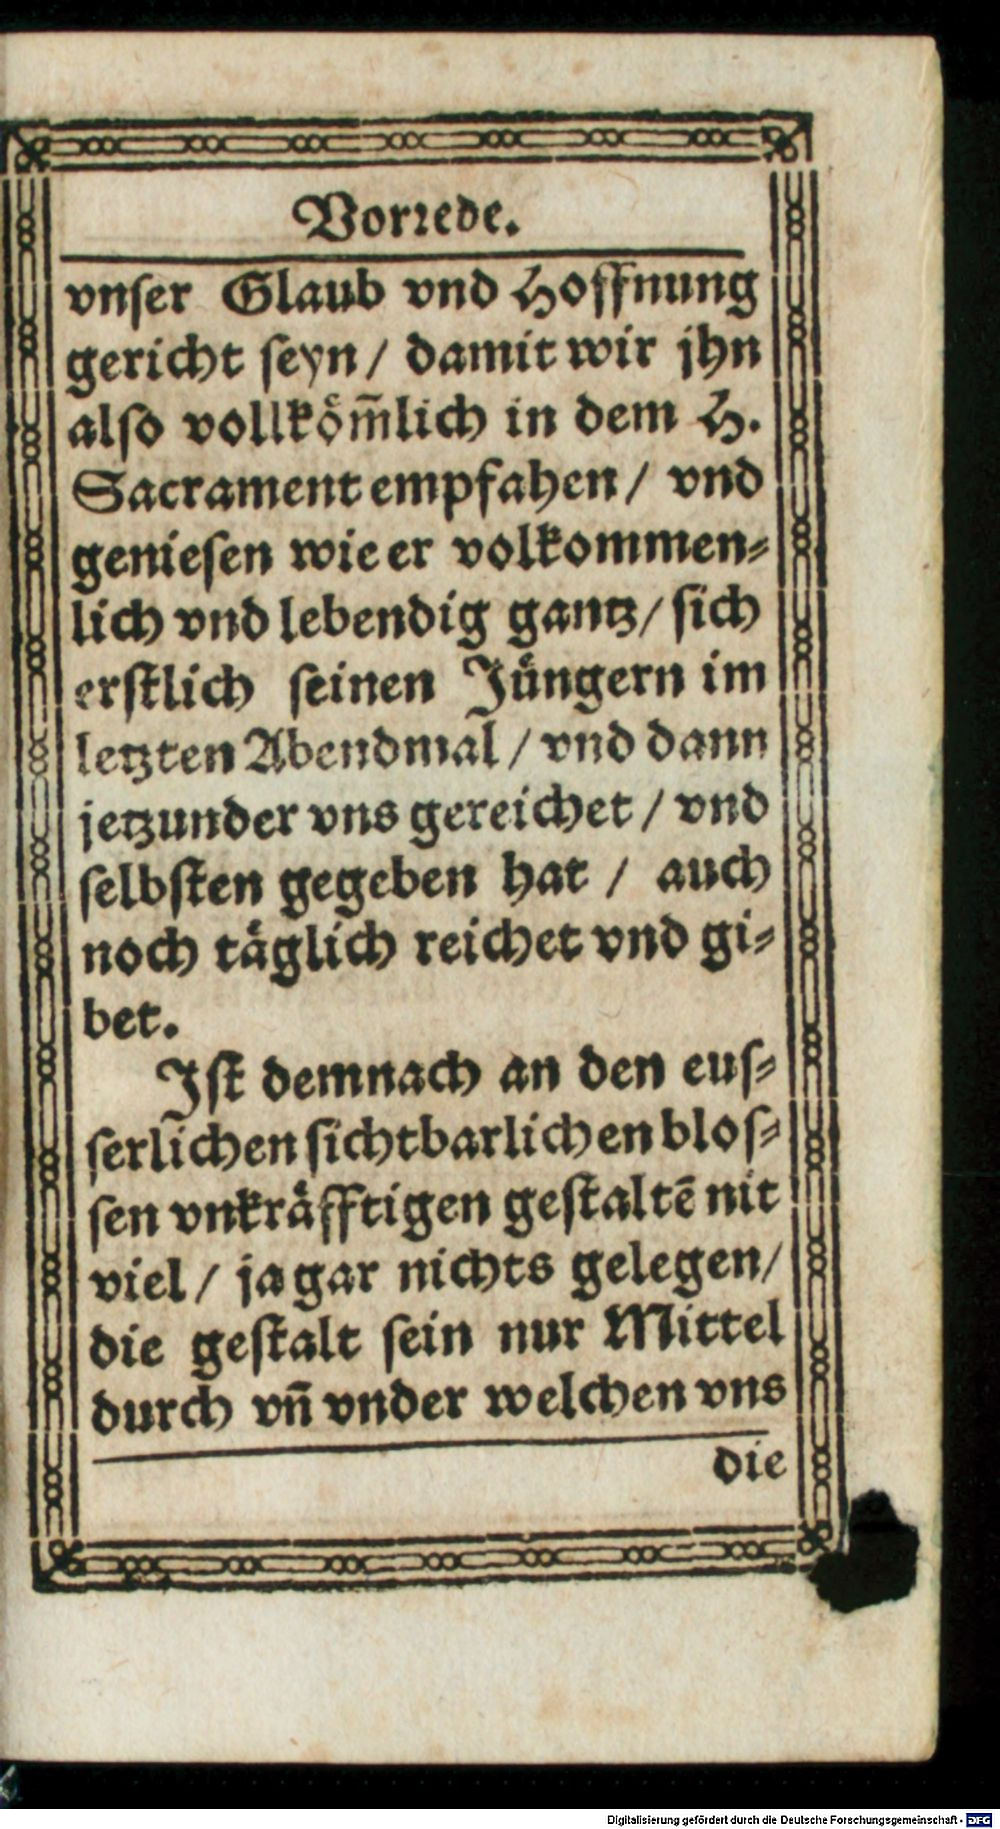 Vorꝛede.
vnſer Glaub vnd Hoffnung
gericht ſeyn / damit wir jhn
alſo vollkoͤm̃lich in dem H.
Sacrament empfahen / vnd
genieſen wie er volkommen⸗
lich vnd lebendig gantz / ſich
erſtlich ſeinen Juͤngern im
letzten Abendmal / vnd dann
jetzunder vns gereichet / vnd
ſelbſten gegeben hat / auch
noch taͤglich reichet vnd gi⸗
bet.
Iſt demnach an den euſ⸗
ſerlichen ſichtbarlichen bloſ⸗
ſen vnkraͤfftigen geſtaltẽ nit
viel / ja gar nichts gelegen /
die geſtalt ſein nur Mittel
durch vñ vnder welchen vns
die
Digitalisierung gefördert durch die Deutsche Forschungsgemeinschaft - DFG